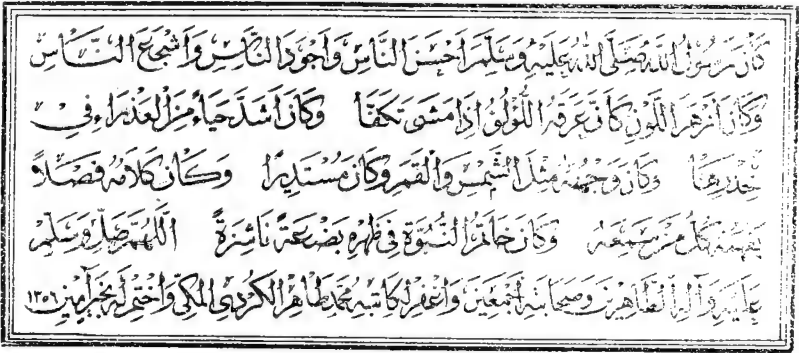 كان رسول الله صلى الله عليه وسلم أحسن الناس وأجود الناس وأشجع الناس
وكان أزهر اللون كأن عرقه اللؤلؤ إذا مشى تكفأ وكان أشد حياء من العذراء في
خدرها وكان وجهه مثل الشمس والقمر وكان مستديرا وكان كلامه فصلا
يفهمه كل من سمعه وكان خاتم النبوة في ظهره بضعة ناشزة اللهم صل وسلم
عليه وآله الطاهرين وصحابته أجمعين واغفر لكاتبه محمد طاهر الكردي المكي واختم له بخير آمين ١٣٥٦